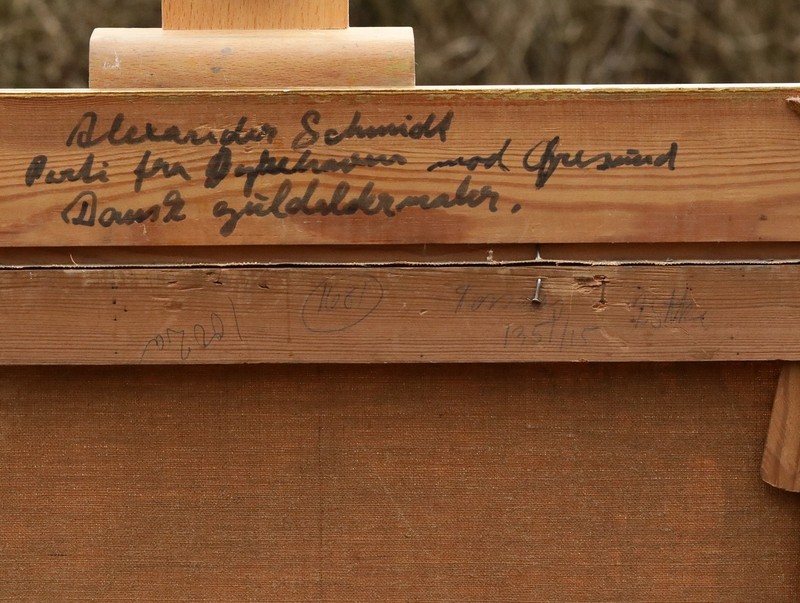 Alexander Schmidt
Parti fra Dyrehaven mod Øresund
Dansk guldaldermaler.
1681
1351/15